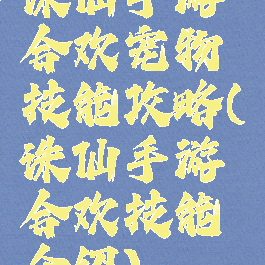 诛仙手游
合欢宠物
技能攻略(
诛仙手游
合欢技能
介绍)